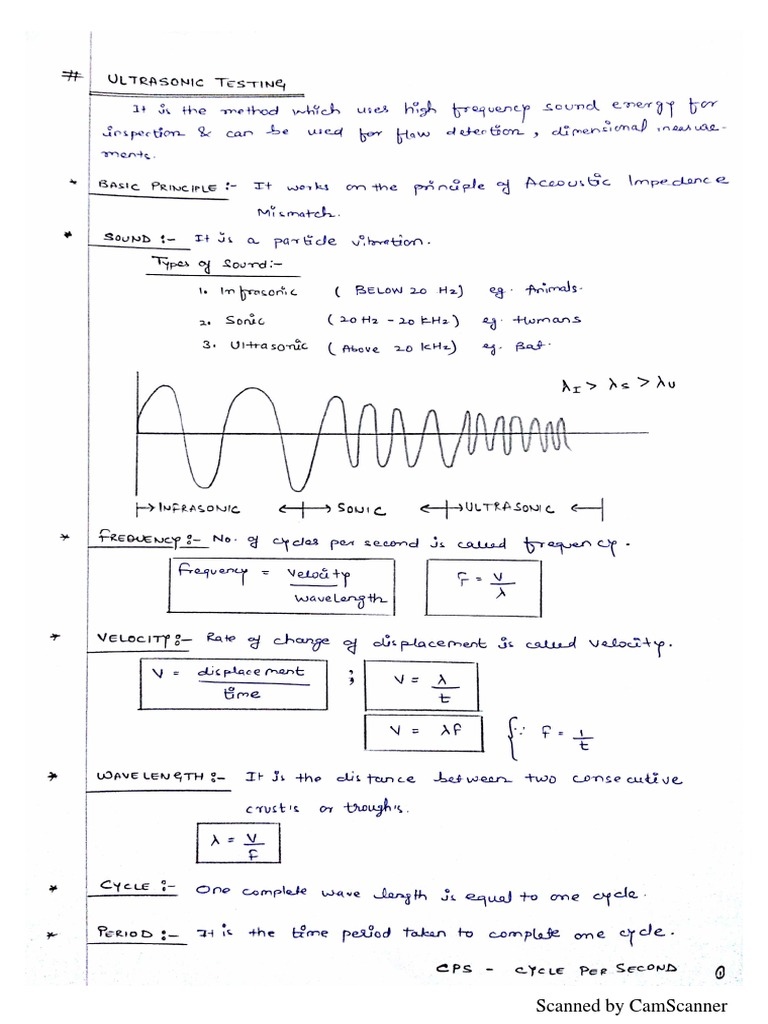 # ULTRASONIC TESTING
It is the method which uses high frequency sound energy for
inspection & can be used for flow detection, dimensional measure-
ments.
* BASIC PRINCIPLE :- It works on the principle of Accoustic Impedence
Mismatch.
* SOUND :- It is a particle vibration.
Types of Sound :-
1. Infrasonic (BELOW 20 Hz) eg. Animals.
2. Sonic (20Hz - 20 KHz) eg. Humans
3. Ultrasonic (Above 20 KHz) eg. Bat.
λI > λS > λU
INFRASONIC SONIC ULTRASONIC
* FREQUENCY :- No. of cycles per second is called frequency.
Frequency = Velocity / Wavelength F = V/λ
* VELOCITY :- Rate of change of displacement is called velocity.
V = displacement / time ; V = λ/t
V = λF {∵ F = 1/t
* WAVELENGTH :- It is the distance between two consecutive
crust's or trough's.
λ = V/F
* CYCLE :- One complete wave length is equal to one cycle.
* PERIOD :- It is the time period taken to complete one cycle.
CPS - CYCLE PER SECOND 1
Scanned by CamScanner